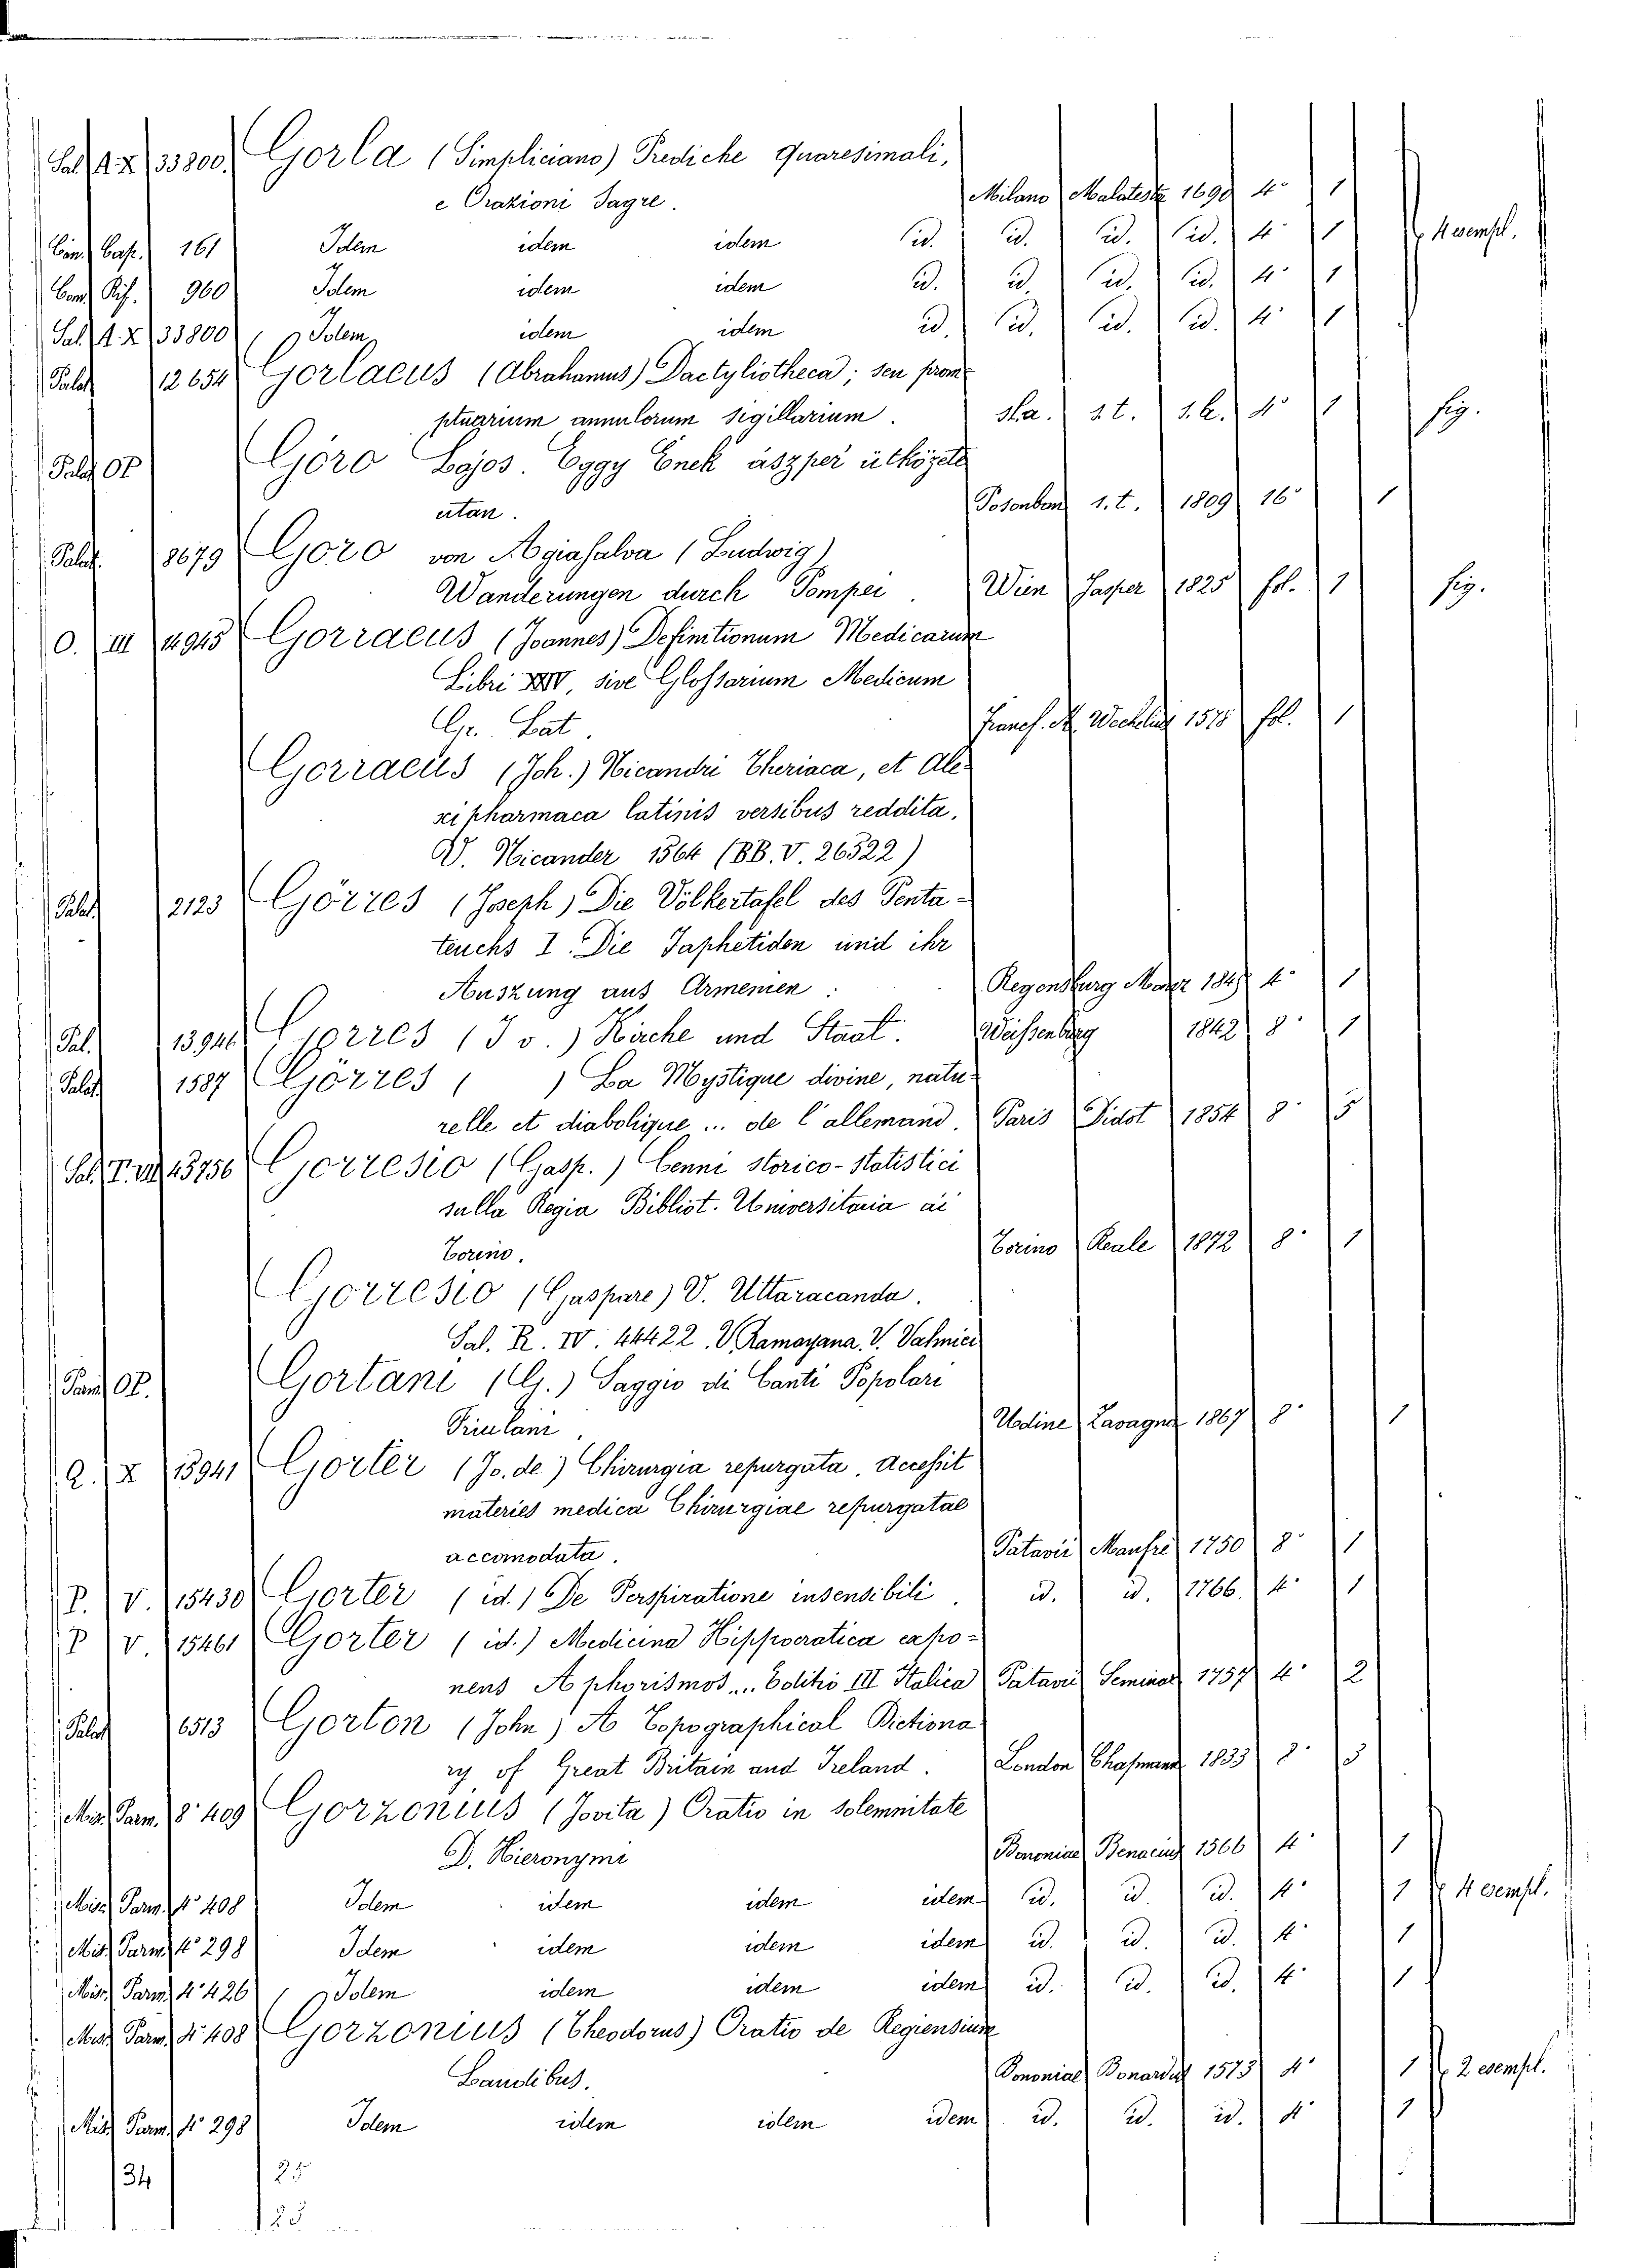 Sal. A. X 33800. Gorla (Simpliciano) Prediche quaresimali,
e Orazioni Sagre. Milano Malatesta 1690 4° 1
Con. Cap. 161 Idem idem idem id. id. id. id. 4° 1 4 esempl.
Con. Rif. 960 Idem idem idem id. id. id. id. 4° 1
Sal. A. X 33800 Idem idem idem id. id. id. id. 4° 1
Palat 12654 Gorlaeus (Abrahamus) Dactyliotheca; seu prom-
ptuarium annulorum sigillarium. s.l.a. s.t. s.a. 4° 1 fig.
Palat OP Göro Lajos. Eggy Enek üszper ütközete
utan. Posonban s.t. 1809 16° 1
Palat. 8679 Goro von Agiafalva (Ludwig)
Wanderungen durch Pompei. Wien Jasper 1825 fol. 1 fig.
O. III 14945 Gorraeus (Joannes) Definitionum Medicarum
Libri XXIV, sive Glossarium Medicum
Gr. Lat. Francf. A. Wecheliu 1578 fol. 1
Gorraeus (Joh.) Nicandri Theriaca, et Ale-
xipharmaca latinis versibus reddita.
V. Nicander 1564 (BB. V. 26522)
Palat. 2123 Görres (Joseph) Die Völkertafel des Penta-
teuchs I. Die Japhetiden und ihr
Auszung aus Armenien: Regensburg Manz 1845 4° 1
Pal. 13946 Görres (J v.) Kirche und Staat. Weissenburg 1842 8° 1
Palat 1587 Görres ( ) La Mystique divine, natu-
relle et diabolique ... de l'allemand. Paris Didot 1854 8° 5
Sal. T. VII 45756 Gorresio (Gasp.) Cenni storico-statistici
sulla Regia Bibliot. Universitaria di
Torino. Torino Reale 1872 8° 1
Gorresio (Gaspare) V. Uttaracanda.
Sal. R. IV. 44422. V. Ramayana. V. Valmici
Parm OP. Gortani (G.) Saggio di Canti Popolari
Friulani. Udine Zavagna 1867 8° 1
Q. X 15941 Gorter (Jo. de) Chirurgia repurgata, accessit
materies medica Chirurgiae repurgatae
accomodata. Patavii Manfrè 1750 8° 1
P. V. 15430 Gorter (id.) De Perspiratione insensibili. id. id. 1766. 4° 1
P V. 15461 Gorter (id.) Medicina Hippocratica expo-
nens Aphorismos... Editio III Italica Patavii Seminar 1757 4° 2
Palat 6513 Gorton (John) A Topographical Dictiona
ry of Great Britain and Ireland. London Chapmann 1833 8° 3
Misc. Parm. 8° 409 Gorzonius (Jovita) Oratio in solemnitate
D. Hieronymi Bononiae Benacius 1566 4° 1
Misc. Parm. 4° 408 Idem idem idem idem id. id. id. 4° 1 4 esempl.
Misc. Parm. 4° 298 Idem idem idem idem id. id. id. 4° 1
Misc. Parm. 4° 426 Idem idem idem idem id. id. id. 4° 1
Misc. Parm. 4° 408 Gorzonius (Theodorus) Oratio de Regiensium
Laudibus. Bononiae Bonardus 1573 4° 1 2 esempl.
Misc. Parm. 4° 298 Idem idem idem idem id. id. id. 4° 1
34 25
25